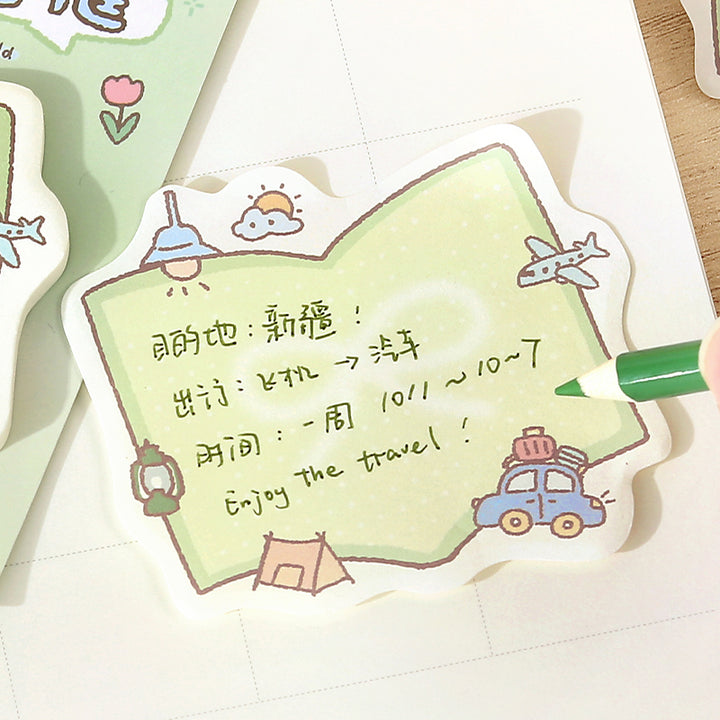 目的地：新疆！
出访：飞机 → 汽车
时间：一周 1011 ~ 10~7
Enjoy the travel!